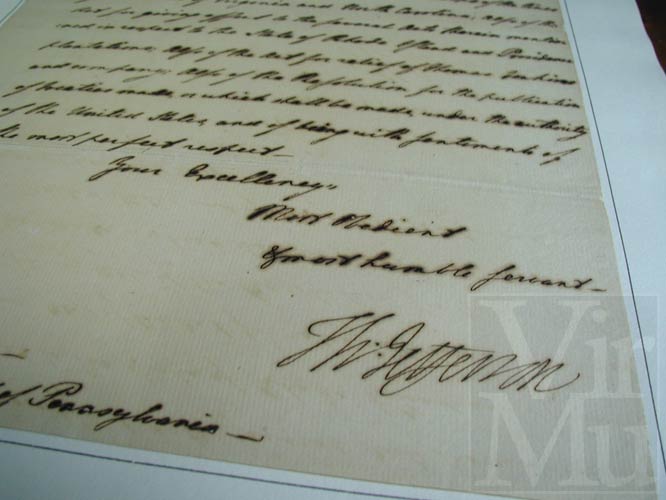 of Virginia and North Carolina, also of the
Act for giving effect to the several Acts therein mention
-ed in respect to the State of Rhode Island and Providence
Plantations, also of the Act for relief of Thomas Jenkins
and company, also of the Resolution for the publication
of treaties made, or which shall be made, under the authority
of the United States, and of being with sentiments of
the most perfect respect—
Your Excellency,
Most Obedient
& most humble servant—
Th: Jefferson
of Pennsylvania—
Vir
Mu